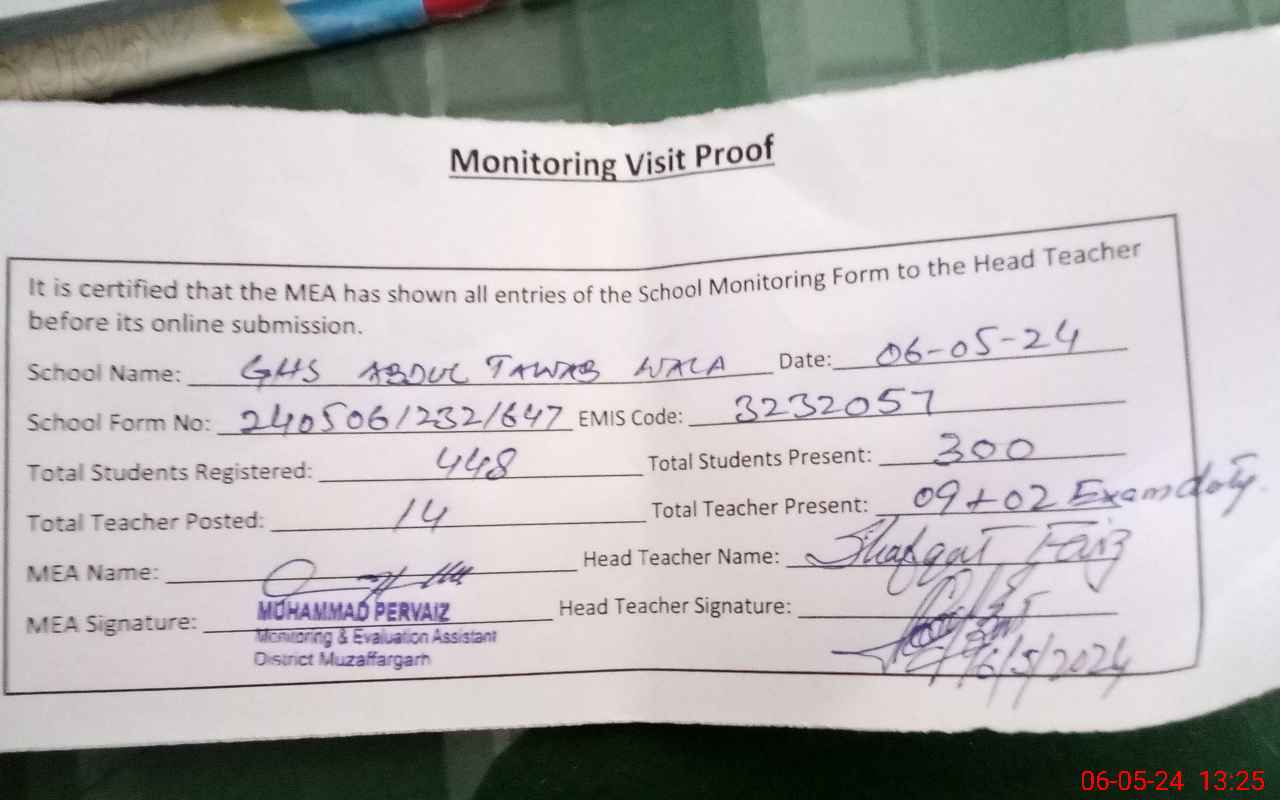 Monitoring Visit Proof
It is certified that the MEA has shown all entries of the School Monitoring Form to the Head Teacher
before its online submission.
School Name: GHS ABDUL TAWAB WALA Date: 06-05-24
School Form No: 240506/232/647 EMIS Code: 3232057
Total Students Registered: 448 Total Students Present: 300
Total Teacher Posted: 14 Total Teacher Present: 09+02 Exam duty.
MEA Name: Head Teacher Name: Shafqat Faiz
MEA Signature: MUHAMMAD PERVAIZ Head Teacher Signature:
Monitoring & Evaluation Assistant
District Muzaffargarh 6/5/2024
06-05-24 13:25